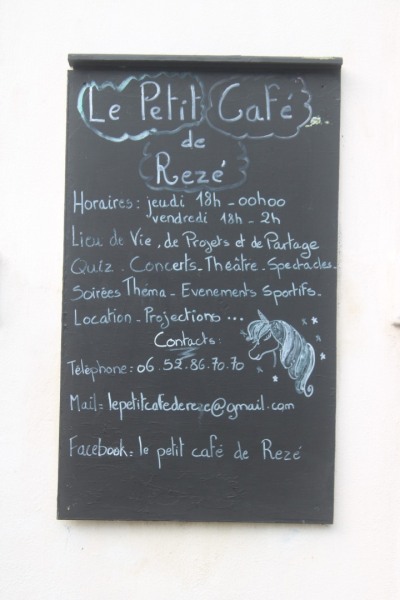 Le Petit Café
de
Rezé
Horaires: jeudi 18h - 00h00
vendredi 18h - 2h
Lieu de Vie, de Projets et de Partage
Quiz - Concerts - Théâtre - Spectacles -
Soirées Théma - Evenements Sportifs -
Location - Projections ...
Contacts:
Téléphone: 06.52.86.70.70
Mail: lepetitcafedereze@gmail.com
Facebook: le petit café de Rezé